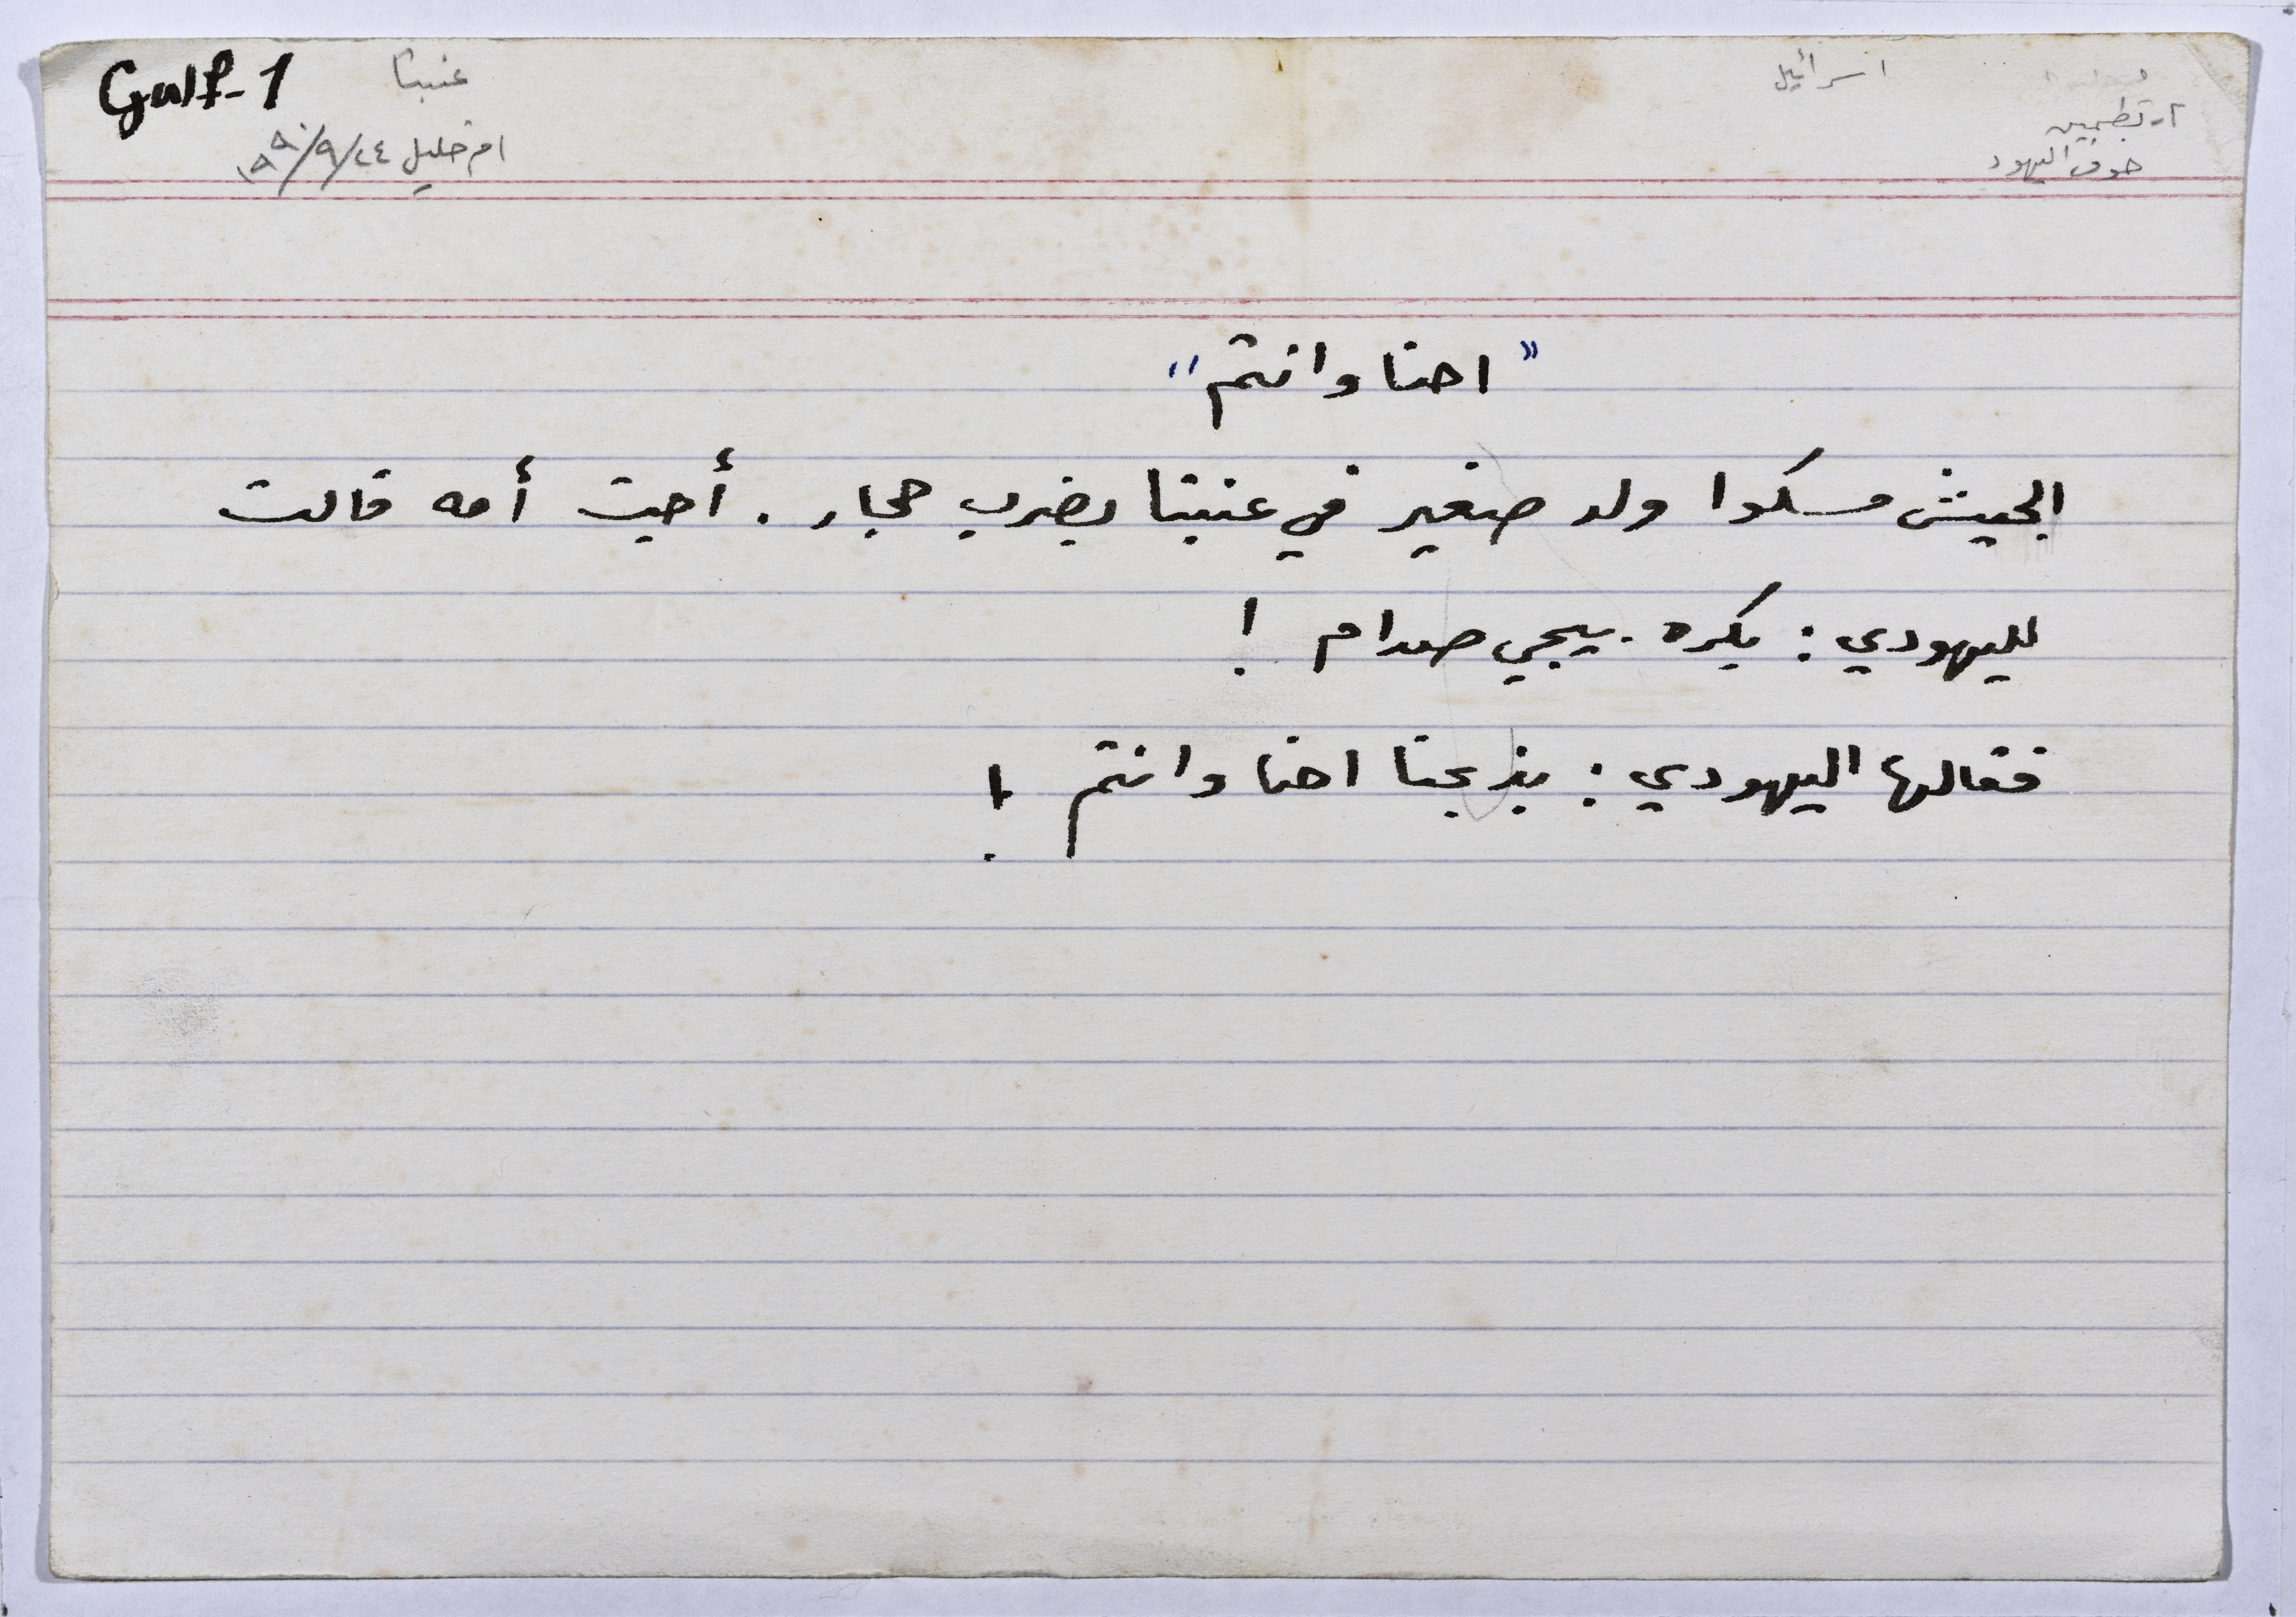 Gulf-1
عنبتا
ام خليل ٢٤/٩/١٩٩٠
اسرائيل
٢- تطمين
خوف اليهود
"احنا وانتم"
الجيش مسكوا ولد صغير في عنبتا بضرب حجار. أجت أمه قالت
لليهودي: بكره بيجي صدام !
فقالها اليهودي: بذبحنا احنا وانتم !